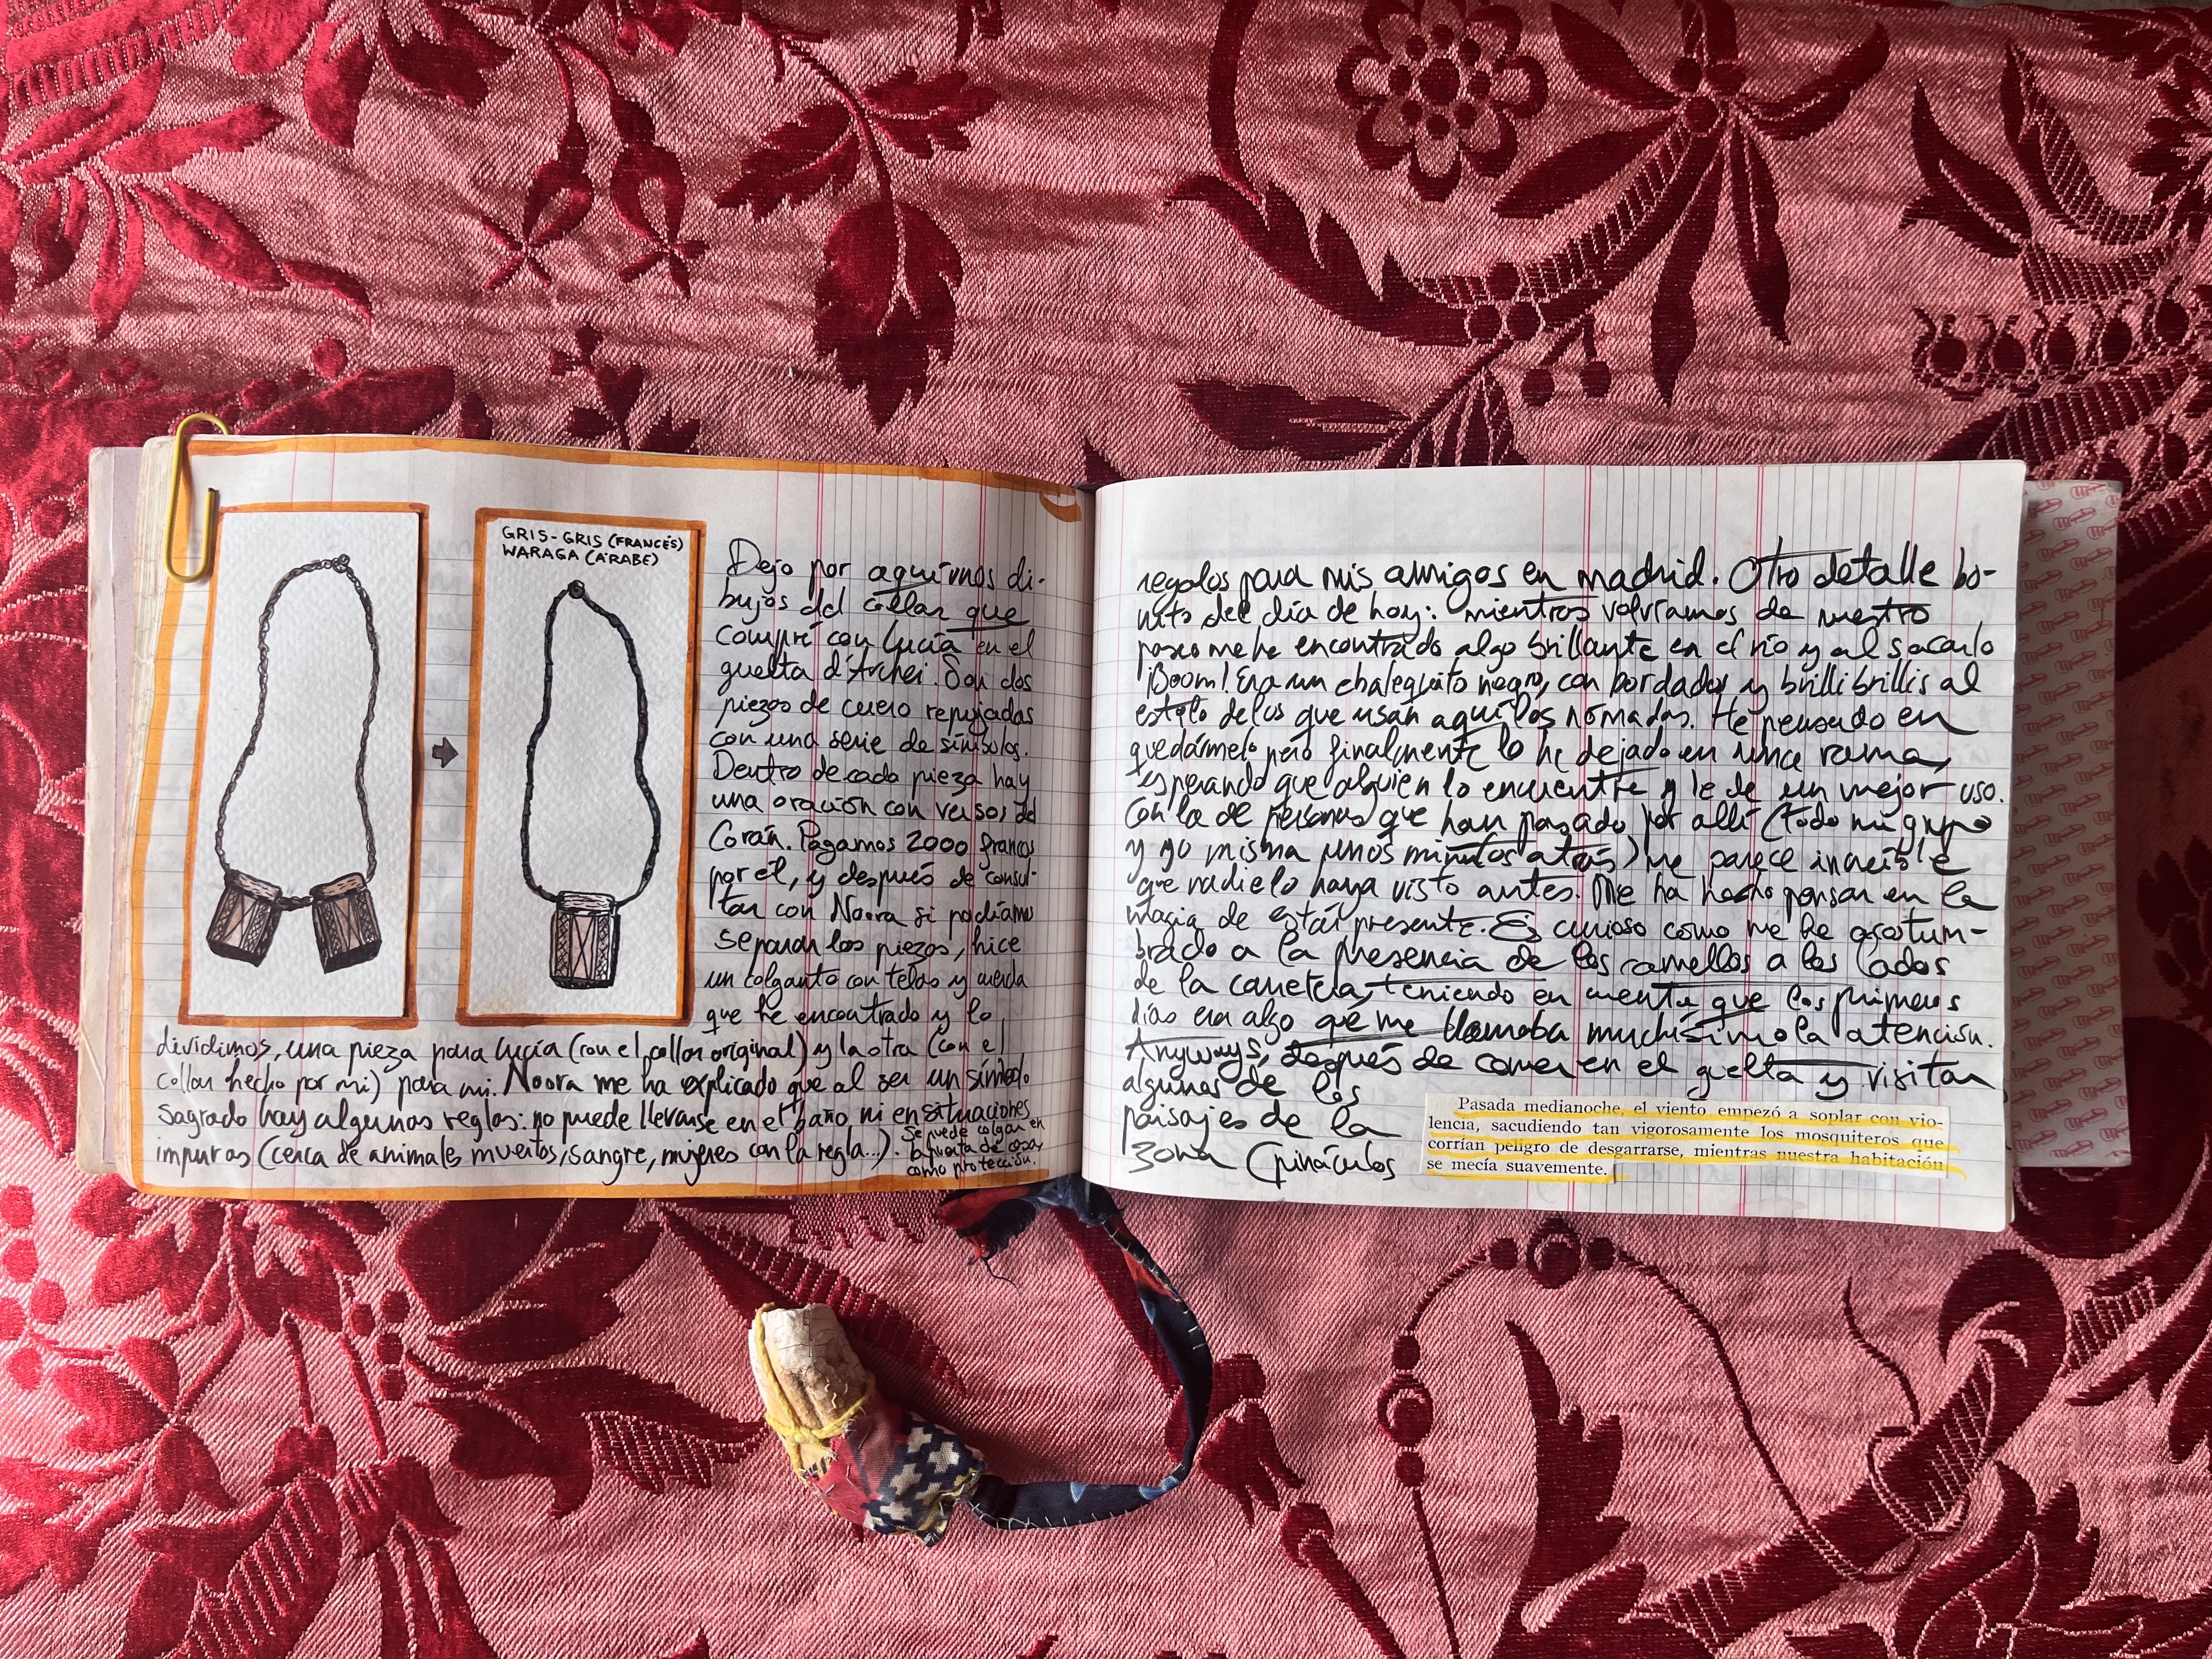 GRIS-GRIS (FRANCÉS)
WARAGA (ÁRABE)
Dejo por aquí unos di-
bujos del collar que
compré con Lucía en el
guelta d'Archei. Son dos
piezas de cuero repujadas
con una serie de símbolos.
Dentro de cada pieza hay
una oración con versos del
Corán. Pagamos 2000 francos
por él, y después de consul-
tar con Noora si podíamos
separar las piezas, hice
un colgante con telas y cuerda
que he encontrado y lo
dividimos, una pieza para Lucía (con el collar original) y la otra (con el
collar hecho por mi) para mi. Noora me ha explicado que al ser un símbolo
sagrado hay algunas reglas: no puede llevarse en el baño, ni en situaciones
impuras (cerca de animales muertos, sangre, mujeres con la regla...).
Se puede colgar en
la puerta de casa,
como protección.
regalos para mis amigos en Madrid. Otro detalle bo-
nito del día de hoy: mientras volvíamos de nuestro
paseo me he encontrado algo brillante en el río y al sacarlo
¡Boom! Era un chalequito negro, con bordados y brilli brillis al
estilo de los que usan aquí los nómadas. He pensado en
quedármelo pero finalmente lo he dejado en una rama,
esperando que alguien lo encuentre y le de un mejor uso.
Con la de personas que han pasado por allí (todo mi grupo
y yo misma unos minutos atrás) me parece increíble
que nadie lo haya visto antes. Me ha hecho pensar en la
magia de estar presente. Es curioso como me he acostum-
brado a la presencia de los camellos a los lados
de la carretera, teniendo en mente que los primeros
días era algo que me llamaba muchísimo la atención.
Anyways, después de comer en el guelta y visitar
algunos de los
paisajes de la
zona (pináculos
Pasada medianoche, el viento empezó a soplar con vio-
lencia, sacudiendo tan vigorosamente los mosquiteros que
corrían peligro de desgarrarse, mientras nuestra habitación
se mecía suavemente.